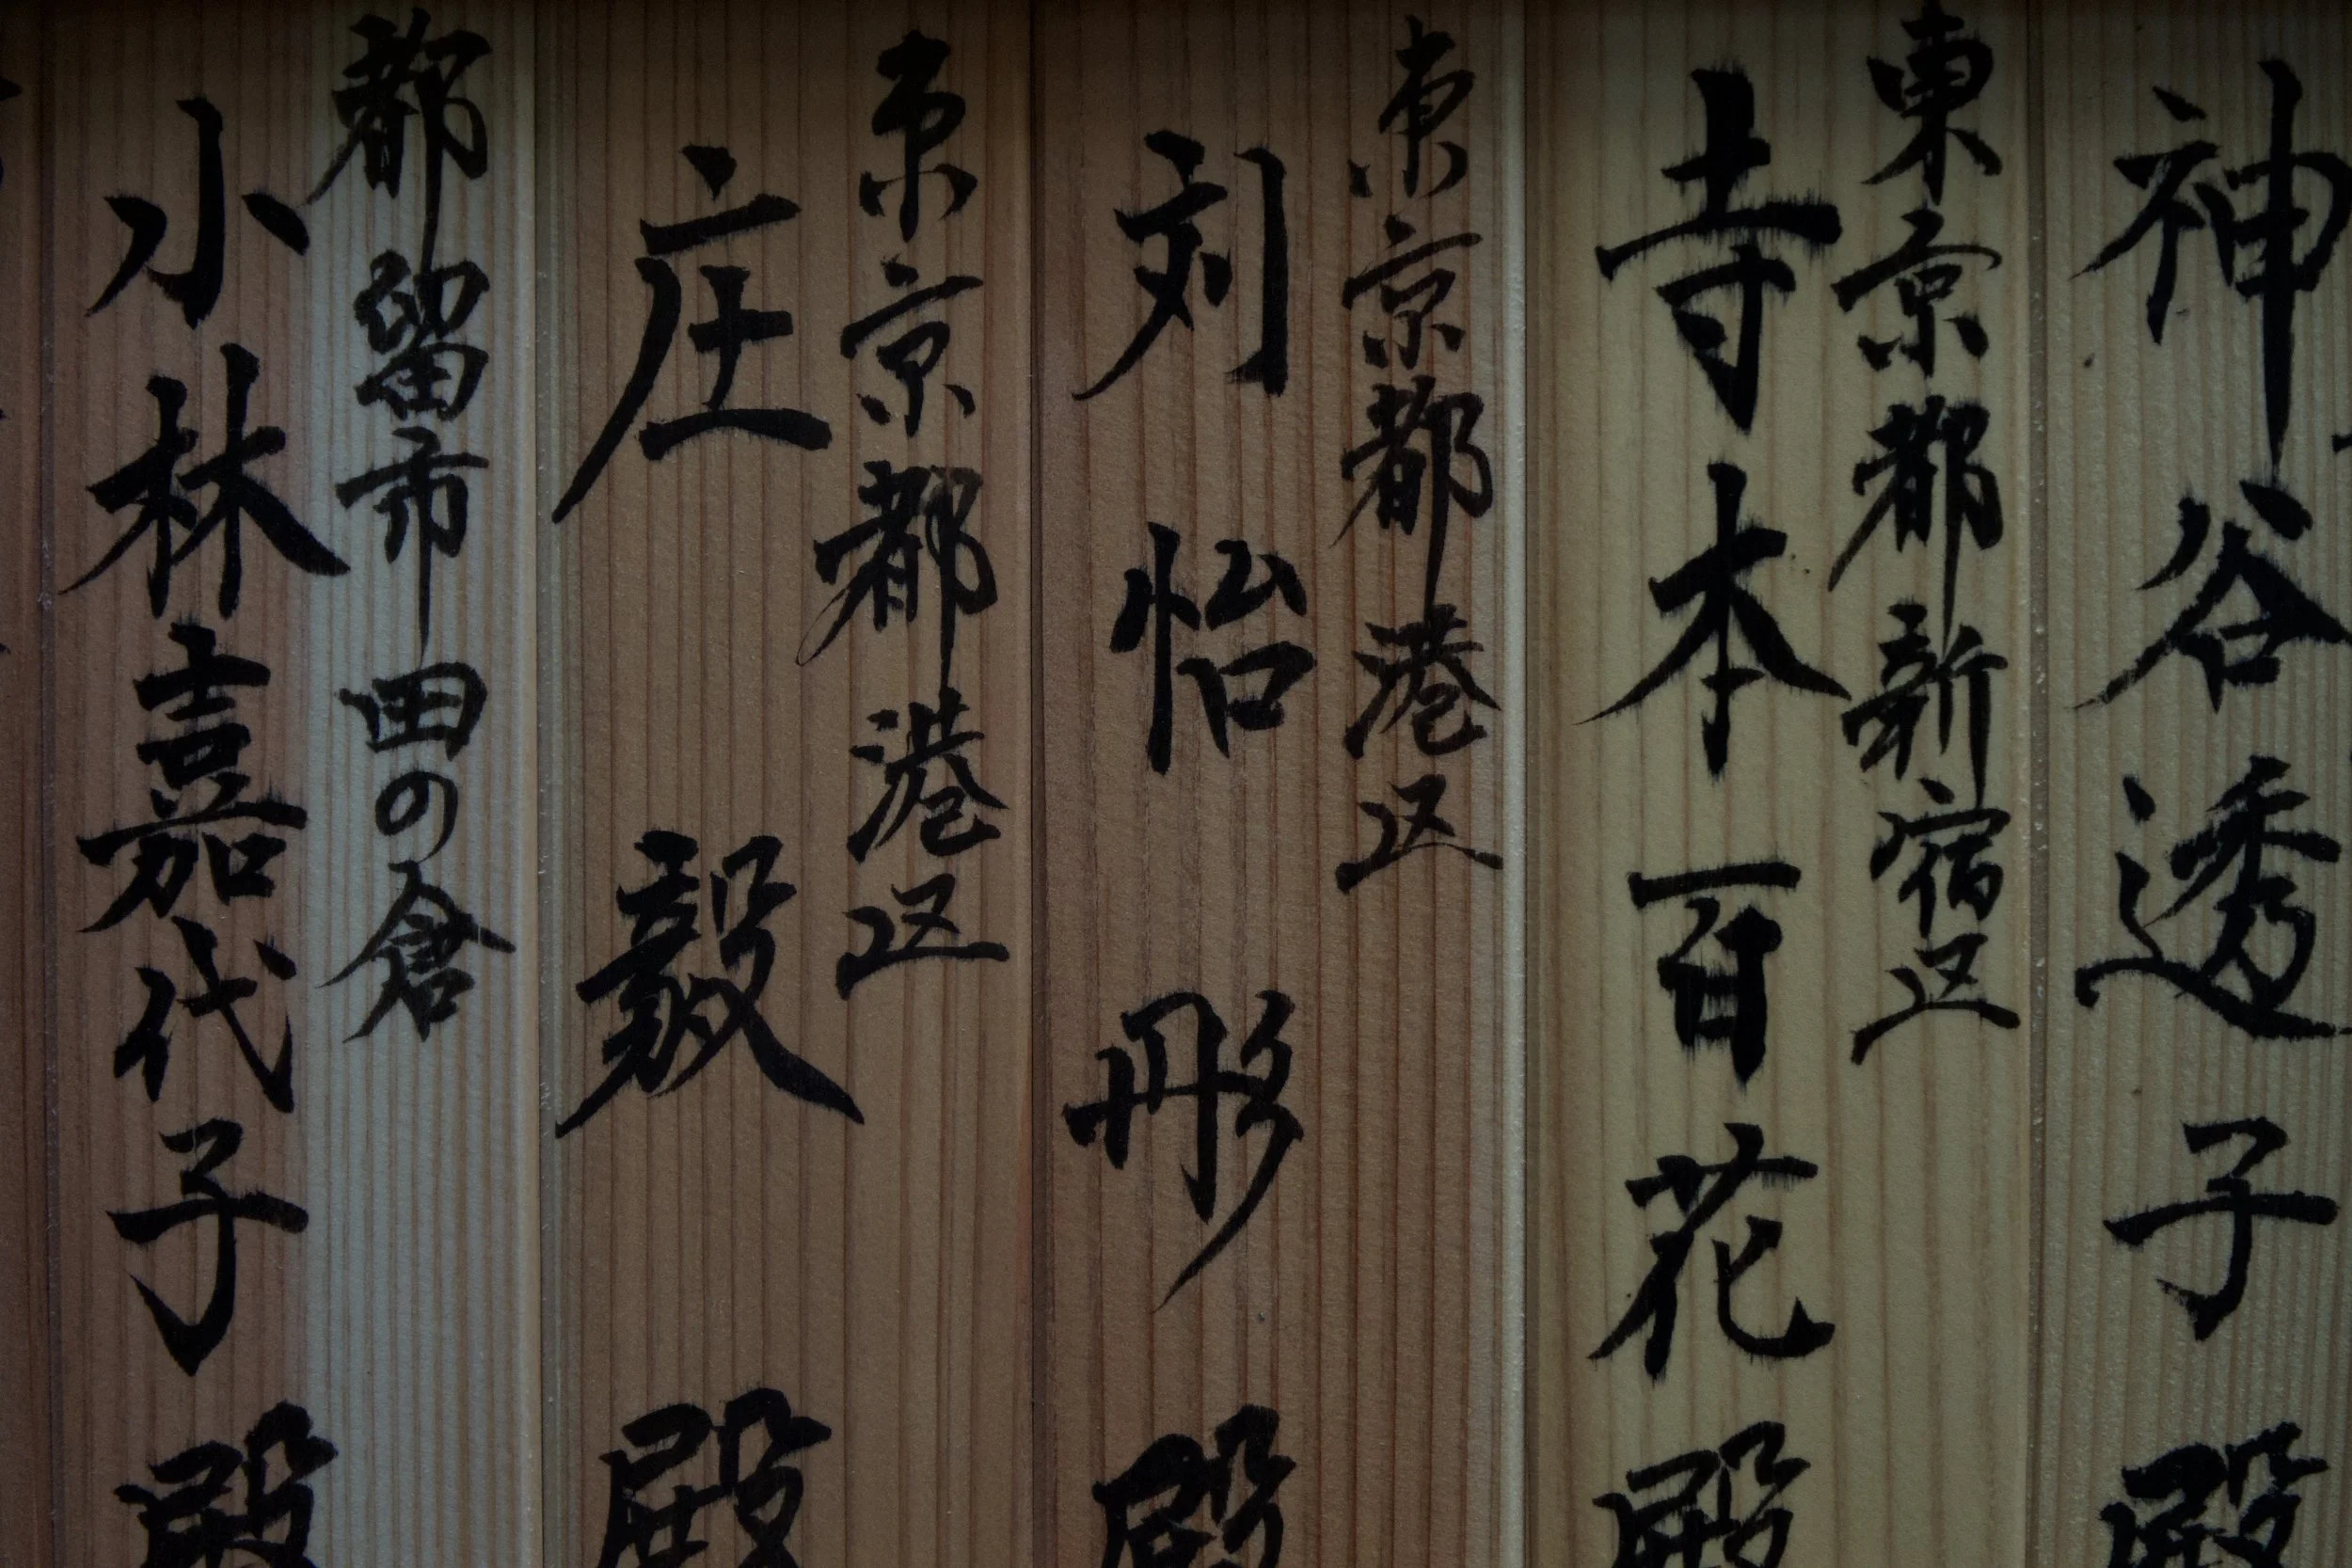 神谷透子殿
東京都新宿区
寺本百花殿
東京都港区
刘怡彤殿
東京都港区
庄毅殿
都留市田の倉
小林嘉代子殿